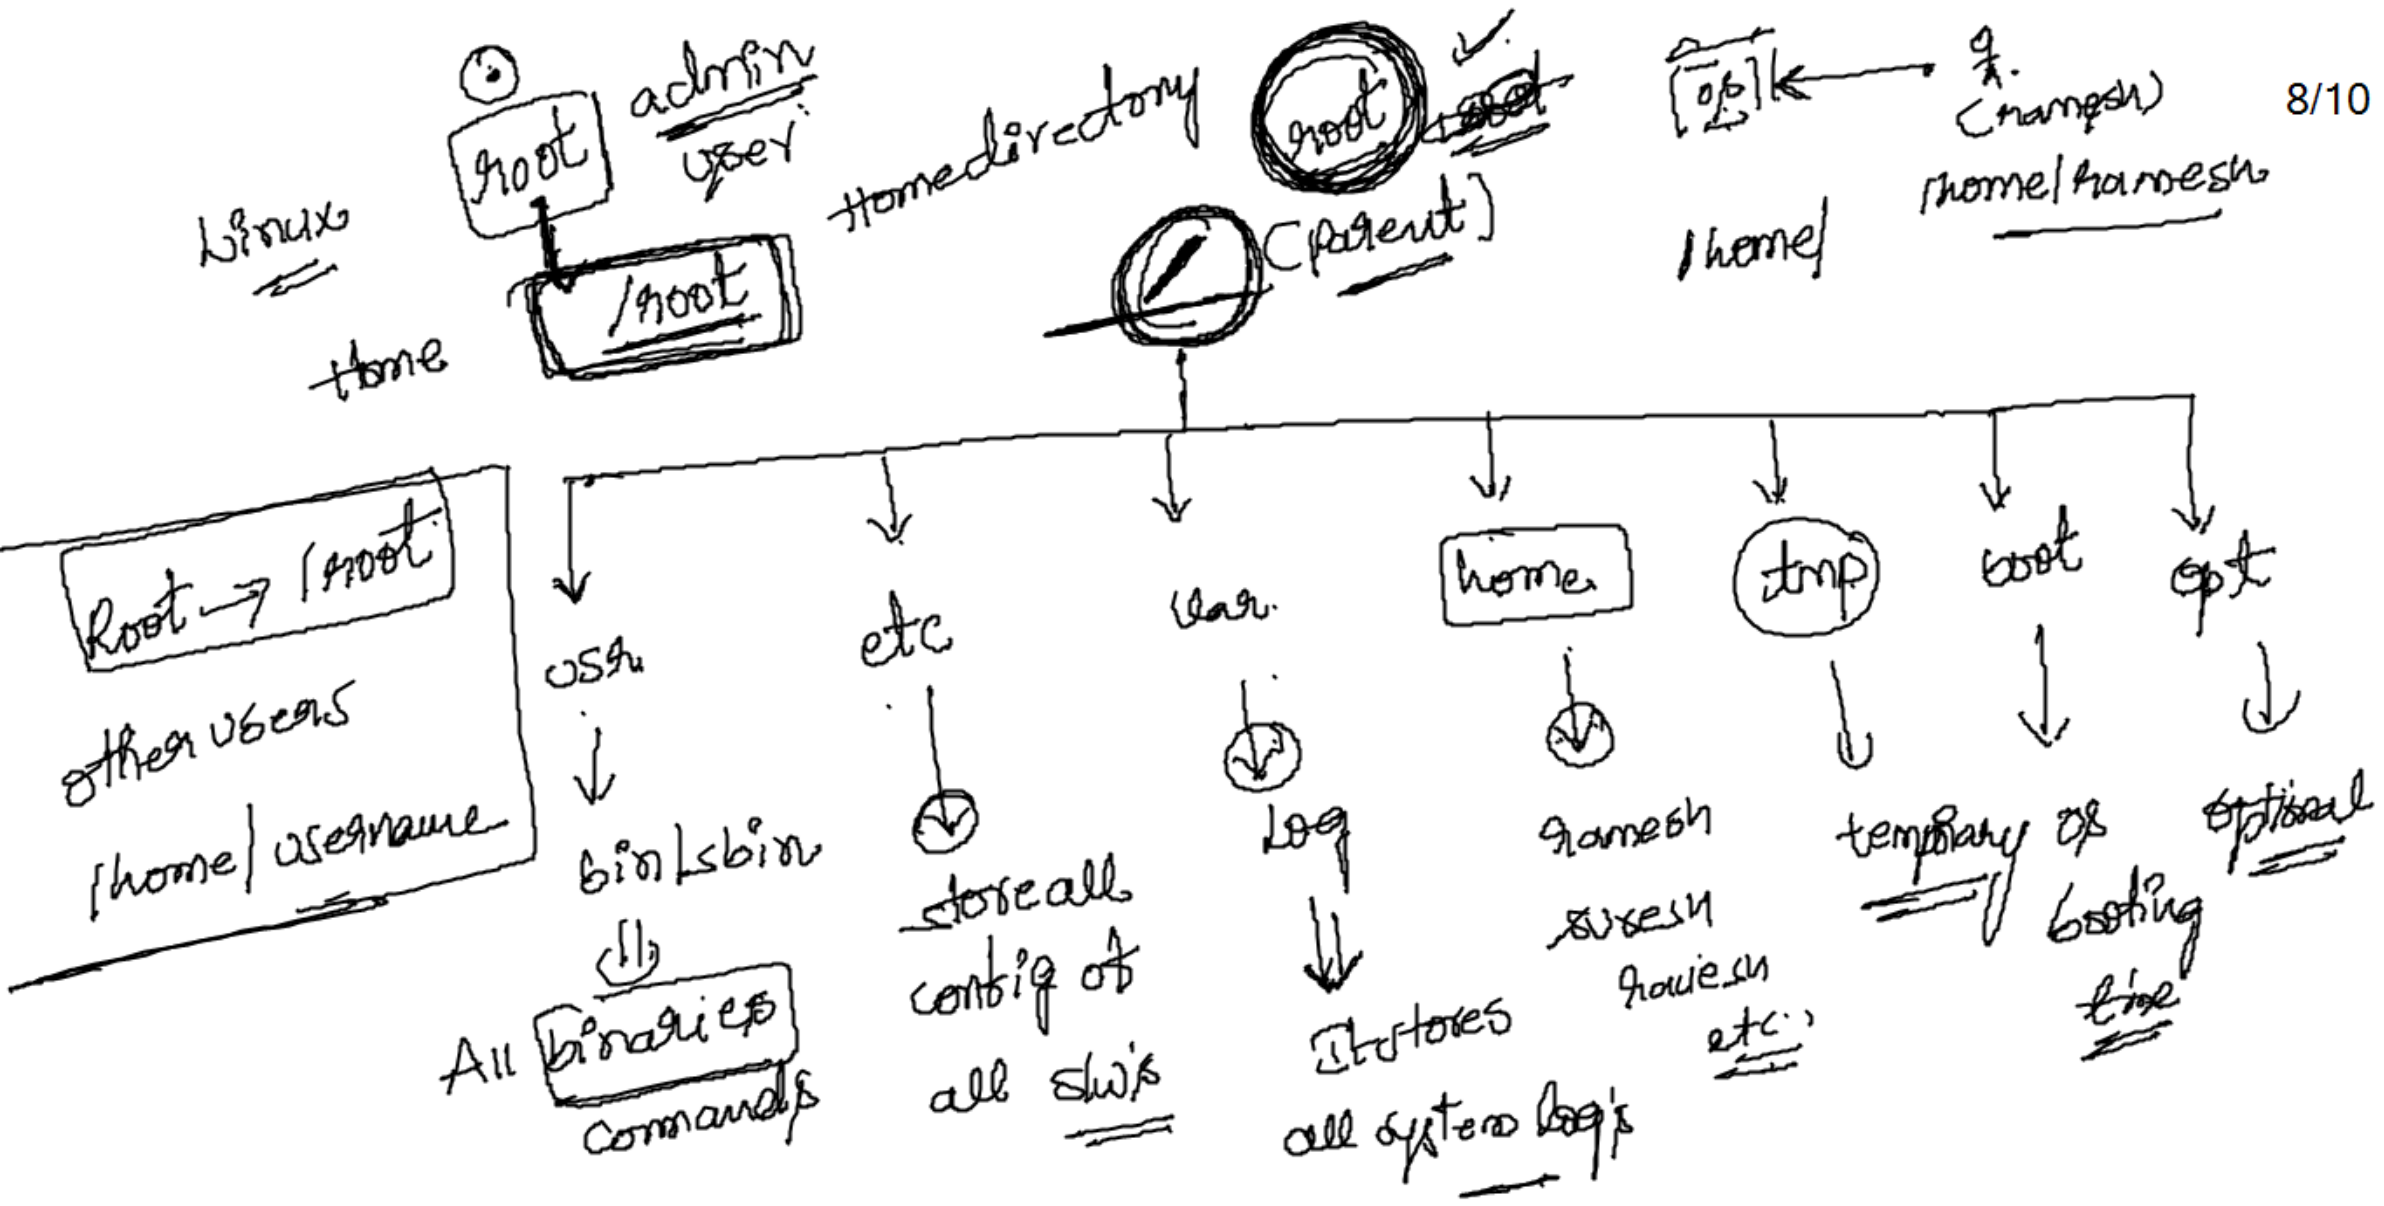 admin
user
root
Linux
/root
Home
Homedirectory
root
/
(parent]
os
(ramesh)
/home/ramesh
/home/
8/10
Root → /root
other users
/home/username
usr
bin/sbin
All binaries
commands
etc
store all
config of
all s/w's
var
Log
It stores
all system log's
home
ramesh
suresh
etc..
tmp
temporary
boot
os
booting
time
opt
optional